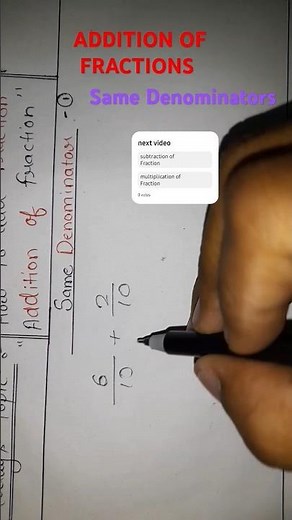 ADDITION OF
FRACTIONS
Same Denominators
next video
subtraction of
Fraction
multiplication of
Fraction
"Addition of fraction"
Same Denominators :- ①
6/10 + 2/10